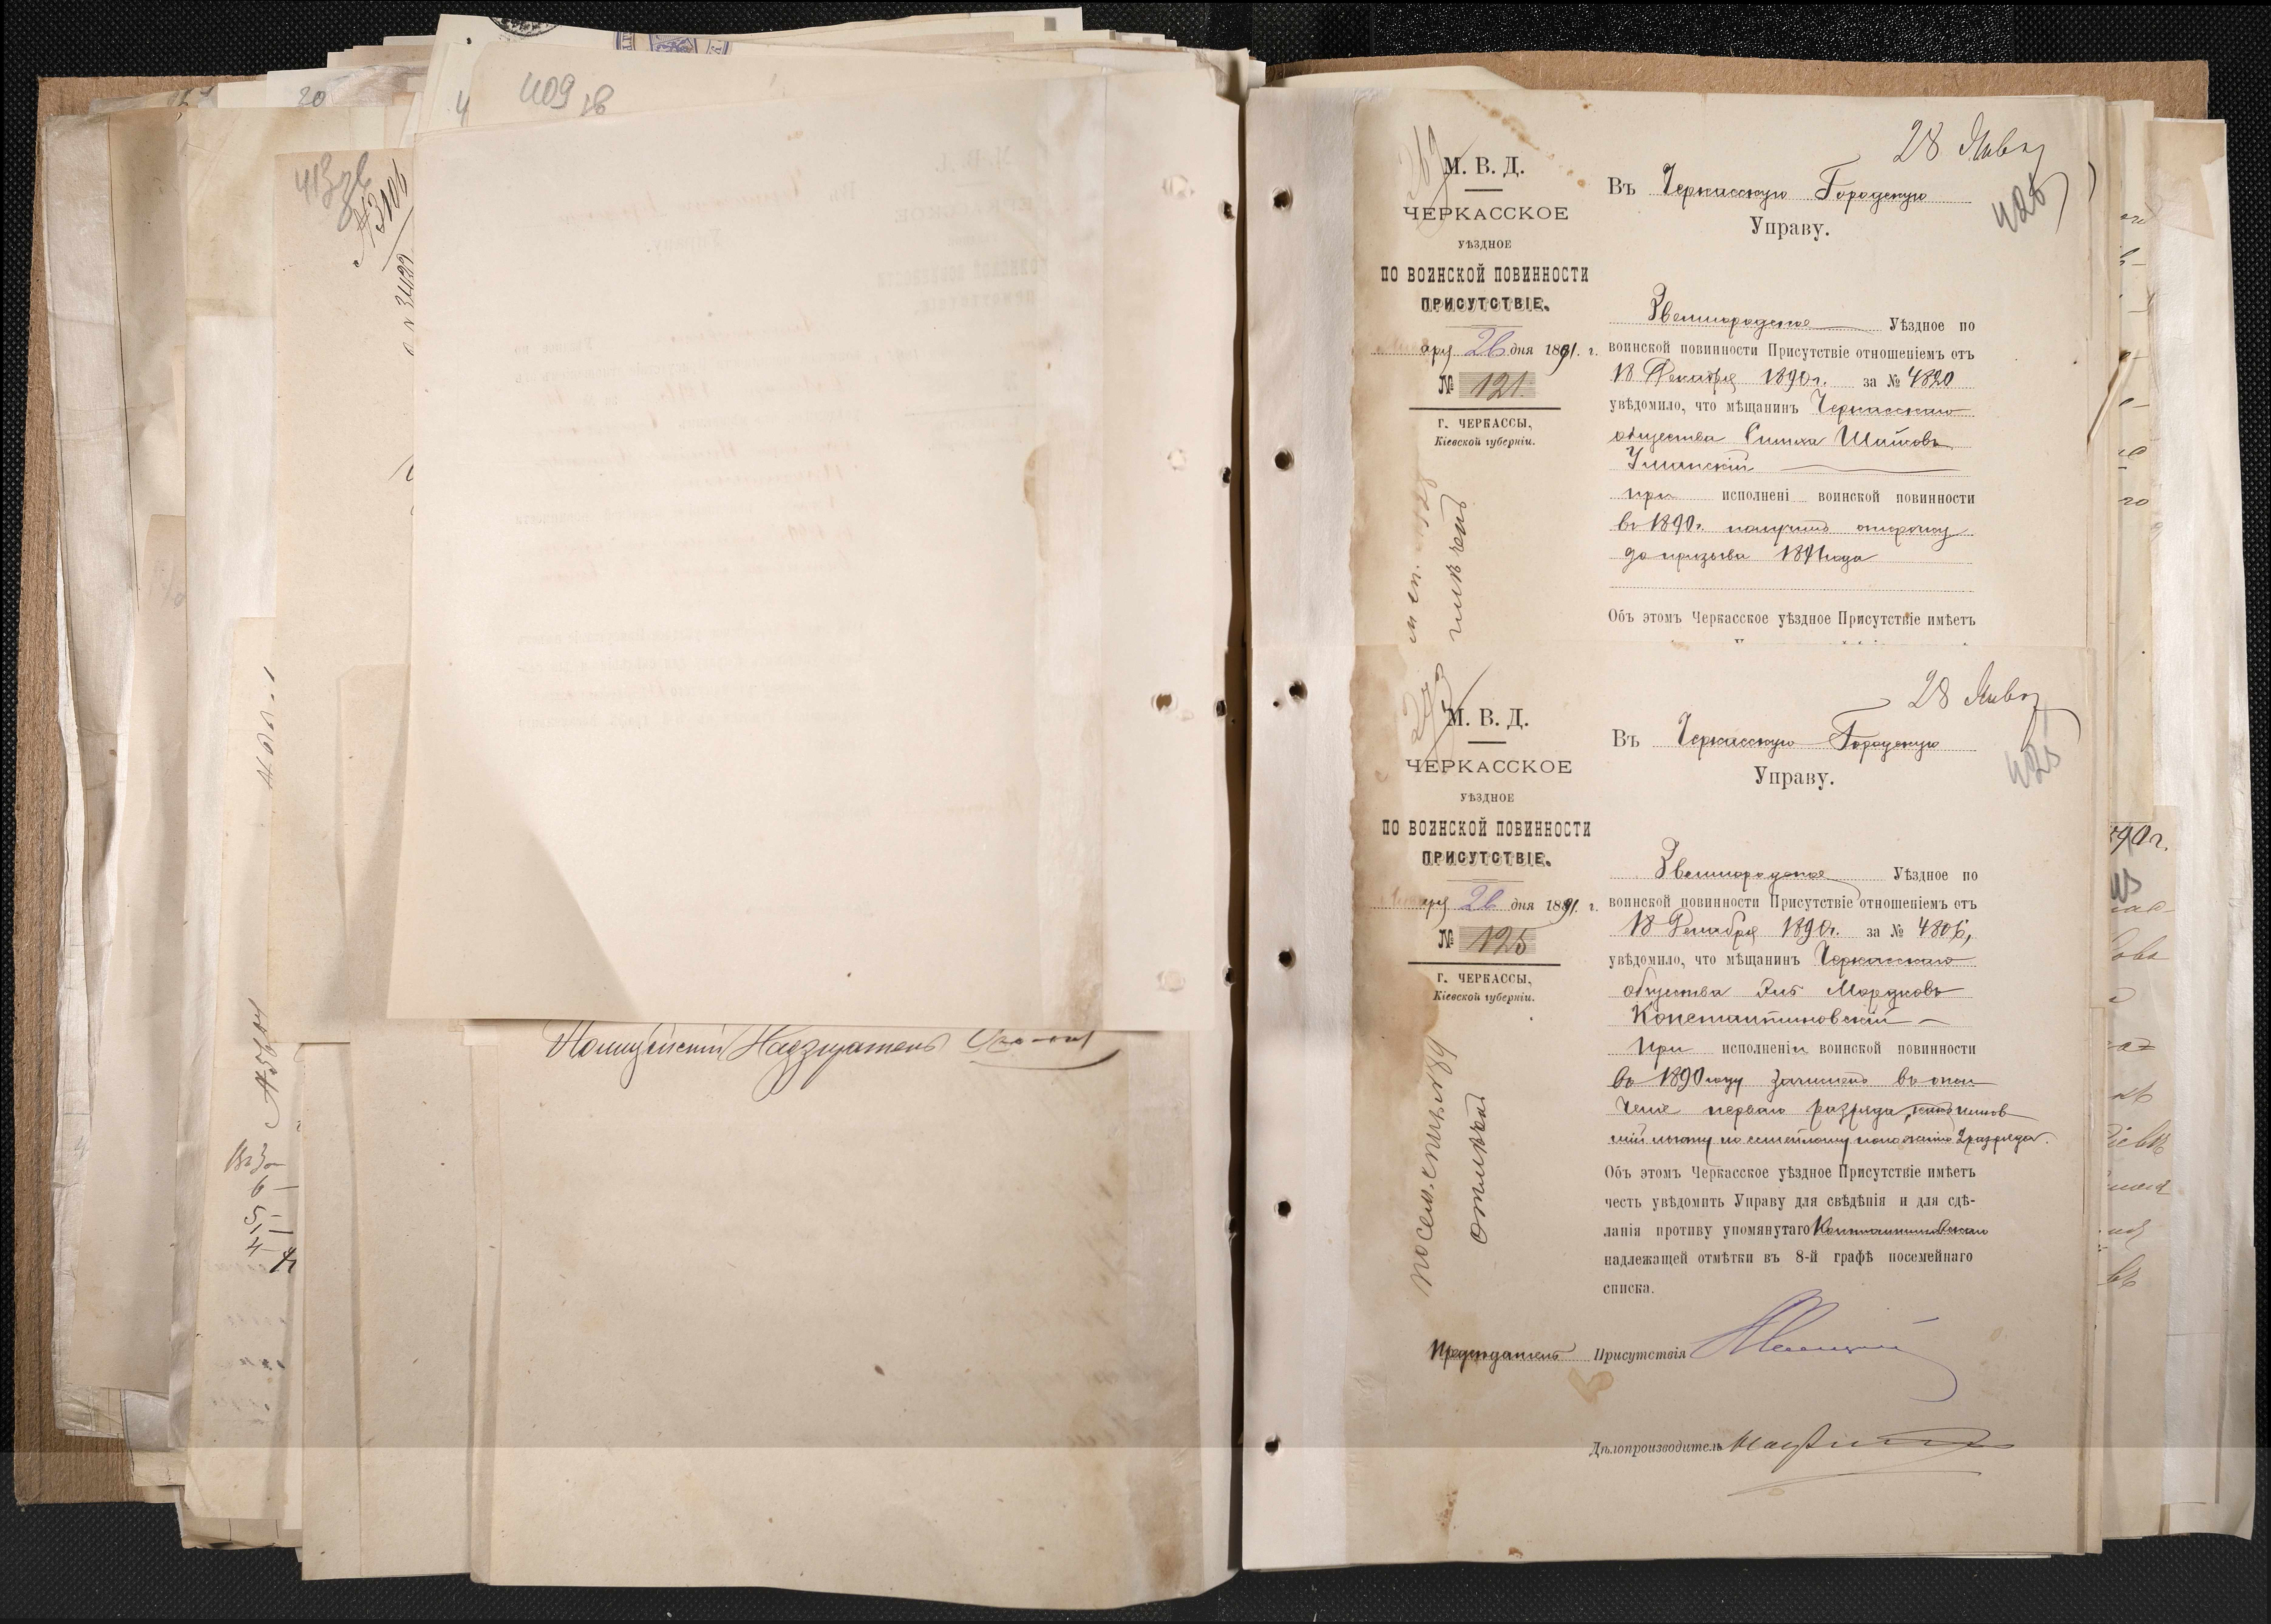 409 зв
20
4
413 зв
№ 3106
Полицейскій Надзиратель
28 Янв
М. В. Д.
ЧЕРКАССКОЕ
УѢЗДНОЕ
ПО ВОИНСКОЙ ПОВИННОСТИ
ПРИСУТСТВІЕ.
аря 26 дня 1891. г.
№ 121.
Г. ЧЕРКАССЫ,
Кіевской губерніи.
отмѣчен
Въ Черкасскую Городскую
Управу.
Звенигородское Уѣздное по
воинской повинности Присутствіе отношеніемъ отъ
18 Декабря 1890 г. за № 4820
увѣдомило, что мѣщанинъ Черкасскаго
общества Симха Шаіовъ
Уманскій
при исполнені воинской повинности
въ 1890 г. получилъ отсрочку
до призыва 1891 года
Объ этомъ Черкасское уѣздное Присутствіе имѣетъ
28 Янв
425
М. В. Д.
ЧЕРКАССКОЕ
УѢЗДНОЕ
ПО ВОИНСКОЙ ПОВИННОСТИ
ПРИСУТСТВІЕ.
аря 26 дня 1891. г.
№ 125
Г. ЧЕРКАССЫ,
Кіевской губерніи.
посем. списк 189
отмѣчен
Въ Черкасскую Городскую
Управу.
Звенигородское Уѣздное по
воинской повинности Присутствіе отношеніемъ отъ
18 Декабря 1890 г. за № 4806,
увѣдомило, что мѣщанинъ Черкасскаго
общества Либ Мордковъ
Константиновскій
При исполненіи воинской повинности
въ 1890 году зачисленъ въ опол
ченіе перваго разряда, какъ имѣв
шій льготу по семейному положенію 2 разряда.
Объ этомъ Черкасское уѣздное Присутствіе имѣетъ
честь увѣдомить Управу для свѣдѣнія и для сдѣ-
ланія противу упомянутаго Константиновскаго
надлежащей отмѣтки въ 8-й графѣ посемейнаго
списка.
Предсѣдатель Присутствія
Дѣлопроизводитель